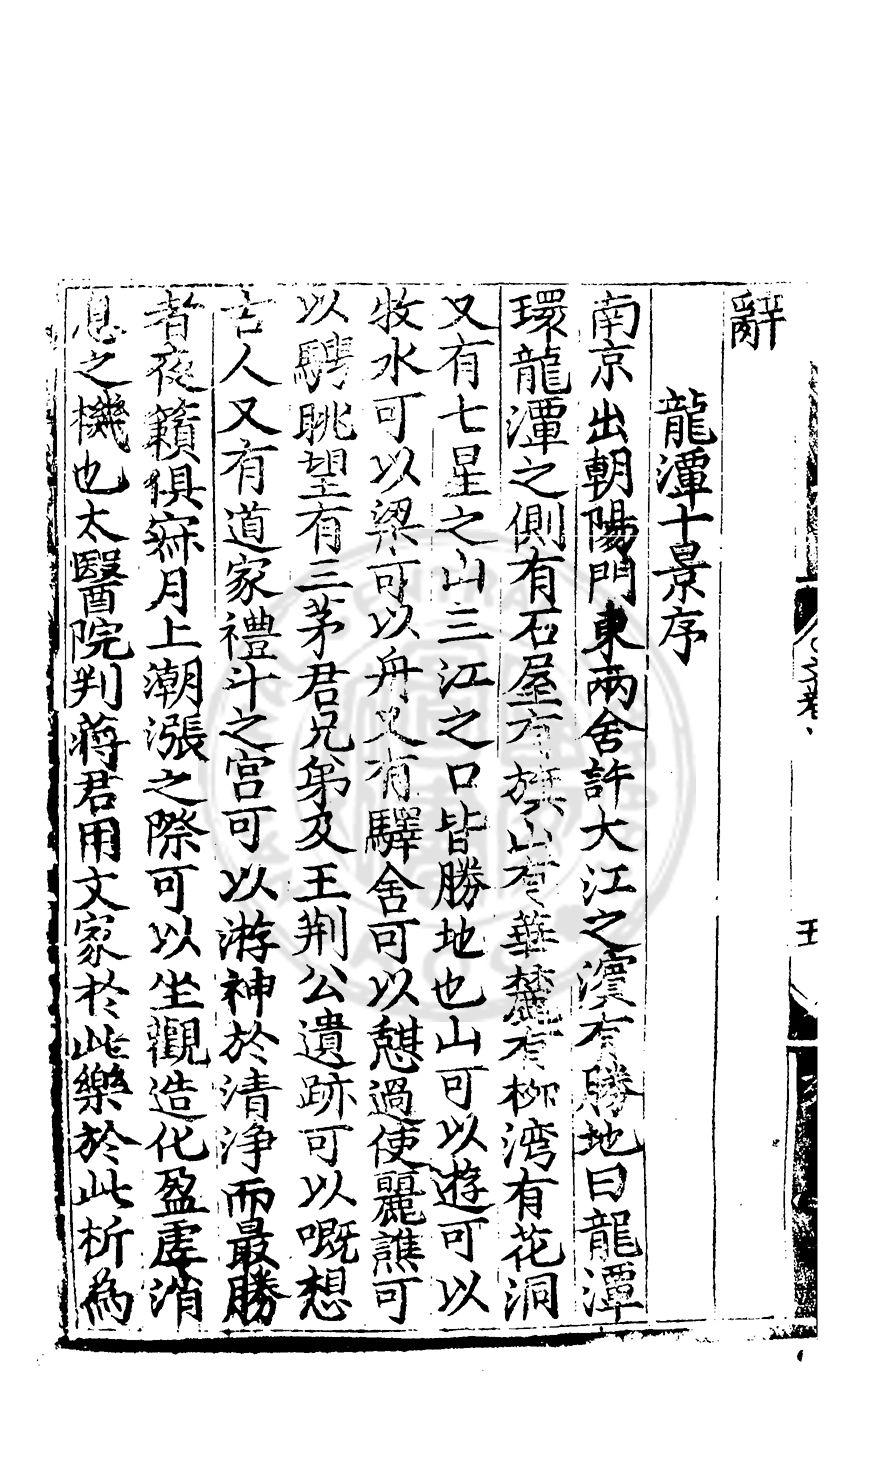 辭
龍潭十景序
南京出朝陽門東兩舍許大江之濱有勝地曰龍潭
環龍潭之側有石屋有旗山有華麓有柳湾有花洞
又有七星之山三江之口皆勝地也山可以遊可以
牧水可以梁可以舟又有驛舍可以憇過使麗譙可
以騁眺望有三茅君兄弟及王荆公遺跡可以嘅想
古人又有道家禮斗之宫可以游神於清浄而最勝
者夜籟俱寂月上潮漲之際可以坐觀造化盈虚消
息之機也太醫院判蔣君用文家於此樂於此析為
文卷
五